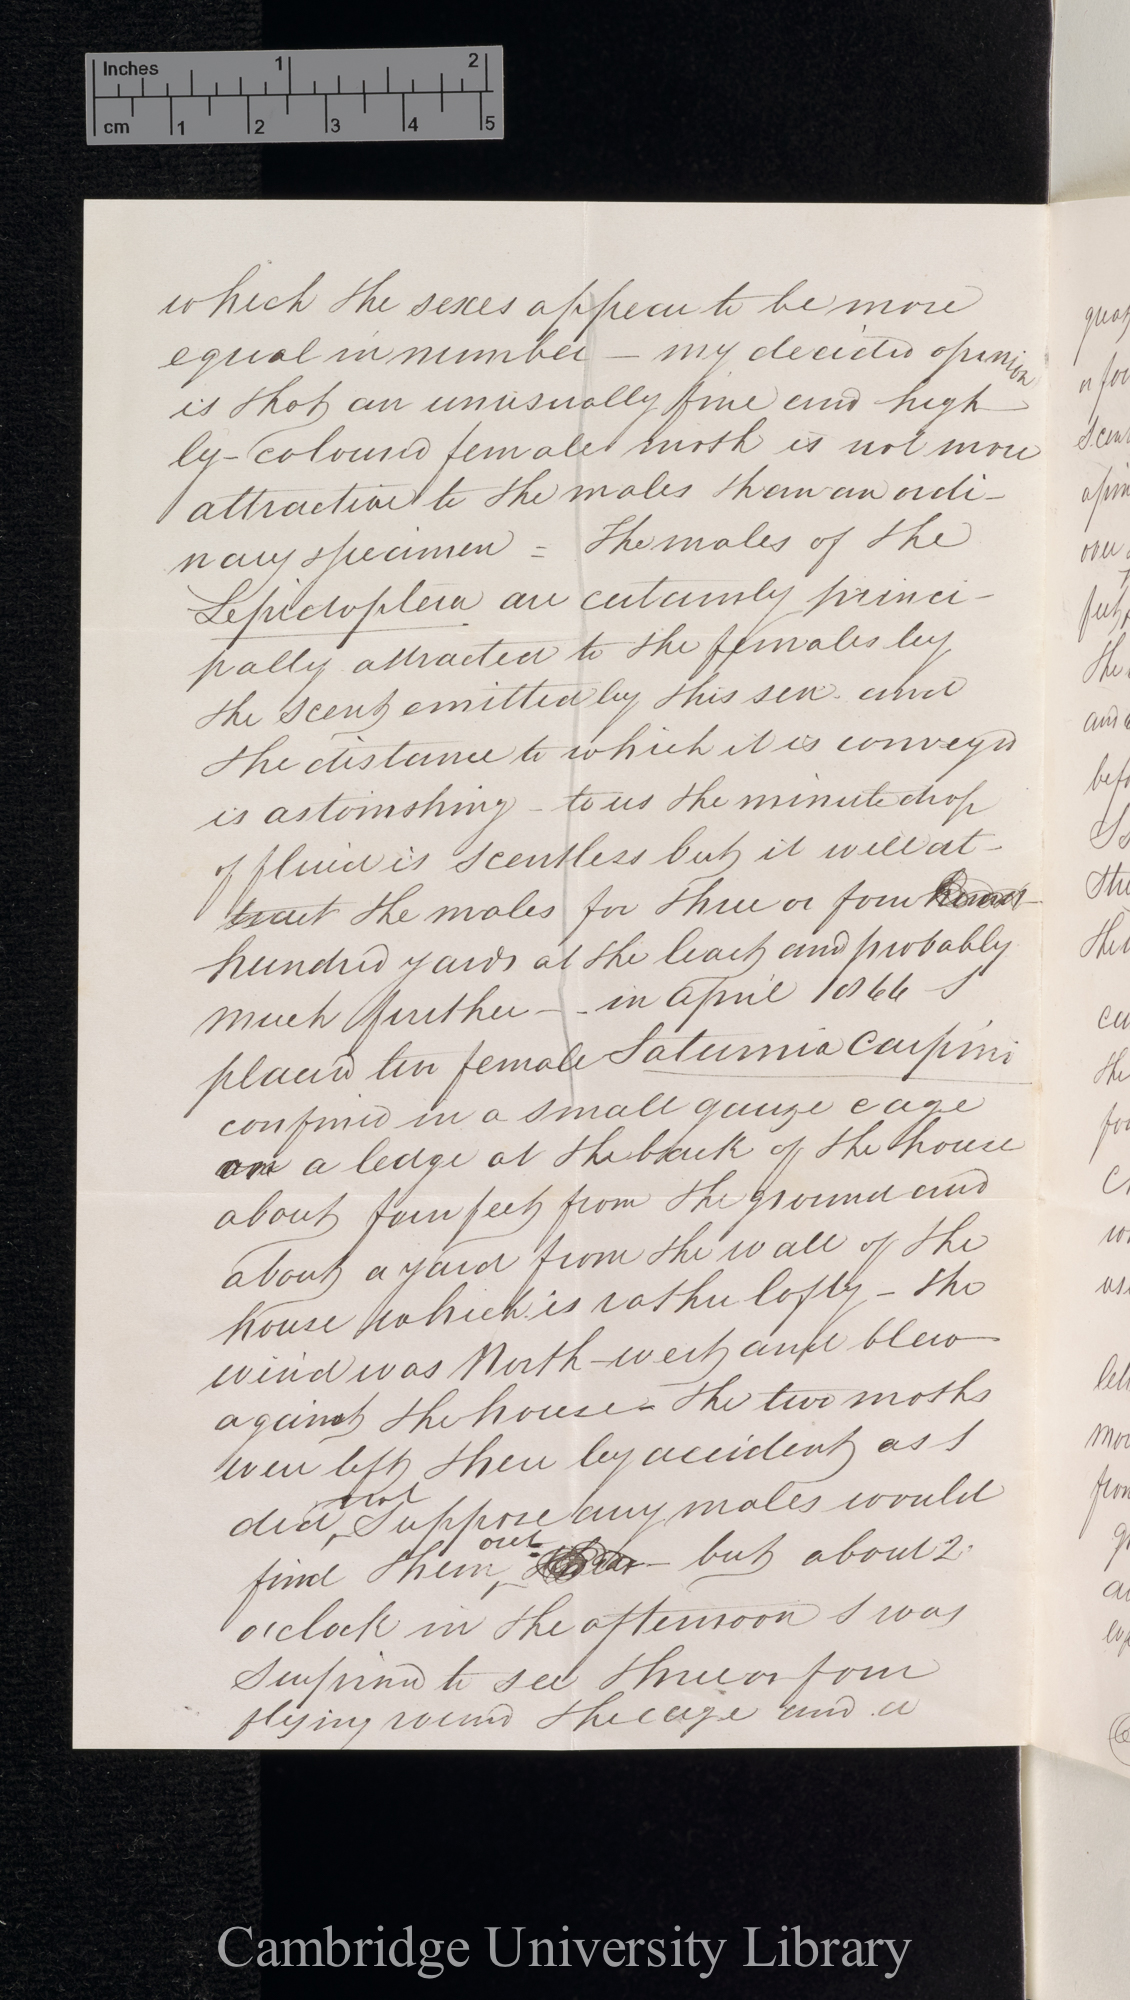 Inches 1 2
cm 1 2 3 4 5
which the sexes appear to be more
equal in number — my decided opinion
is that an unusually fine and high
ly-coloured female moth is not more
attractive to the males than an ordi-
nary specimen = The males of the
Lepidoptera are certainly princi-
pally attracted to the females by
the scent emitted by this sex. and
the distance to which it is convey'd
is astonishing - to us the minute drop
of fluid is scentless but it will at-
tract the males for three or four
hundred yards at the least and probably
much further — - in April 1866 I
placed two female Saturnia Carpini
confined in a small gauze cage
on a ledge at the back of the house
about four feet from the ground and
about a yard from the wall of the
house which is rather lofty - the
wind was North-west and blew
against the house - The two moths
were left there by accident as I
did not suppose any males would
find them out — but about 2.
o'clock in the afternoon I was
surprised to see three or four
flying round the cage and a
Cambridge University Library